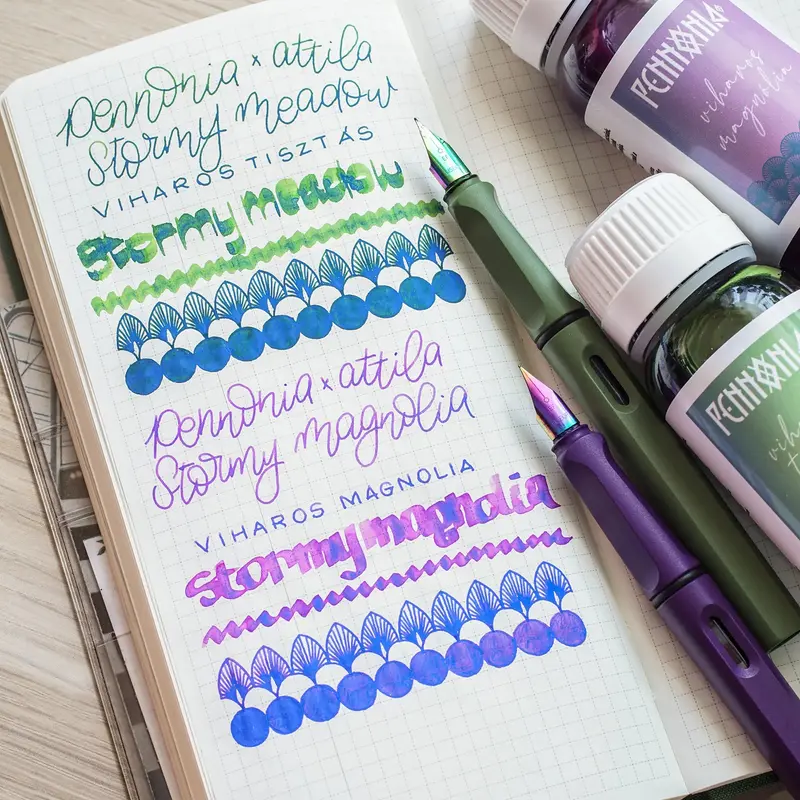 pennonia x attila
Stormy meadow
VIHAROS TISZTÁS
stormy meadow
pennonia x attila
Stormy magnolia
VIHAROS MAGNOLIA
stormy magnolia
PENNONIA
viharos
magnolia
PENNONIA